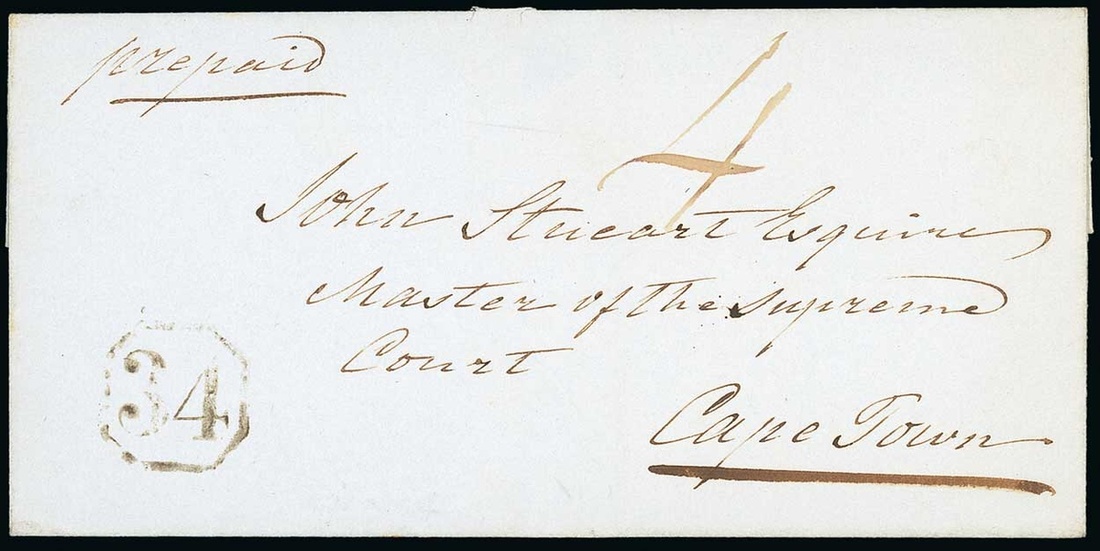 prepaid
4
John Steuart Esquire
Master of the Supreme
Court
Cape Town
34